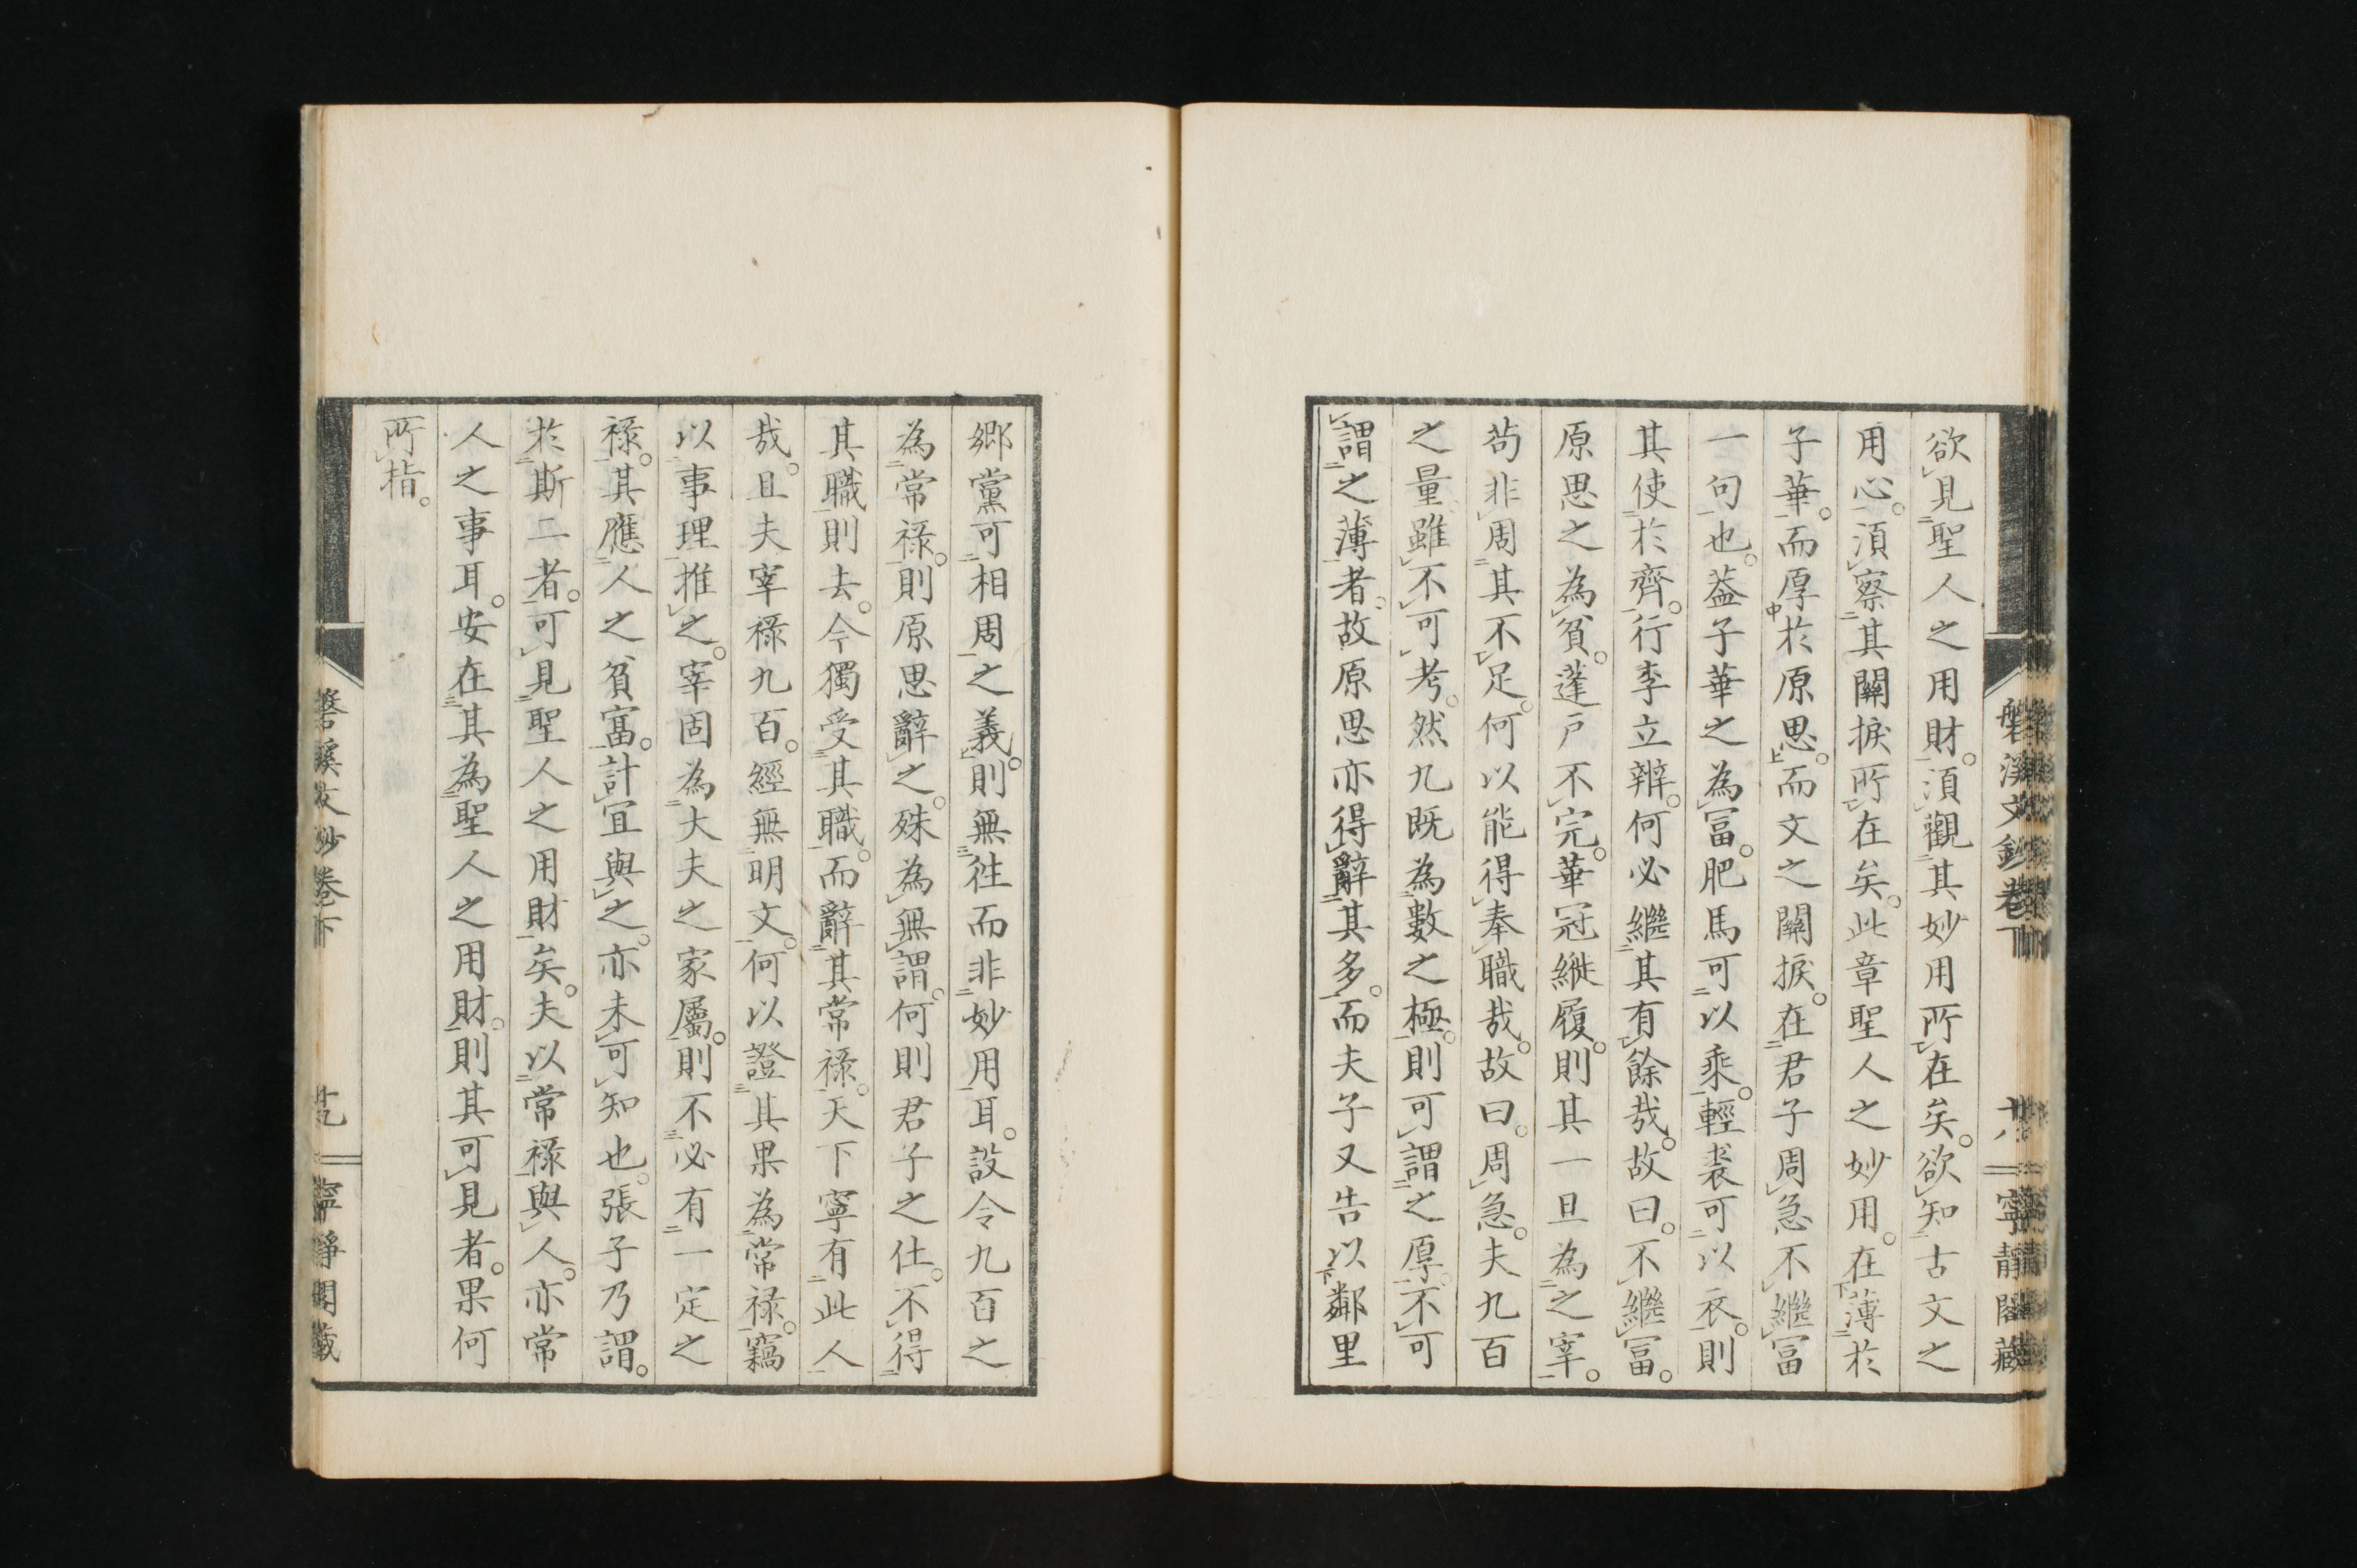 欲見聖人之用財。須觀其妙用所在矣。欲知古文之
用心。須察其關捩所在矣。此章聖人之妙用。在薄於
子華。而厚於原思。而文之關捩。在君子周急不繼冨
一句也。葢子華之為冨。肥馬可以乘。輕裘可以衣。則
其使於齊。行李立辨。何必繼其有餘哉。故曰。不繼冨。
原思之為貧。蓬戶不完。華冠縰履。則其一旦為之宰。
苟非周其不足。何以能得奉職哉。故曰。周急。夫九百
之量。雖不可考。然九既為數之極。則可謂之厚。不可
謂之薄者。故原思亦得辭其多。而夫子又告以鄰里
磐溪文鈔卷下
廿八
寧靜閣藏
鄉黨可相周之義。則無往而非妙用耳。設令九百之
為常祿。則原思辭之。殊為無謂。何則君子之仕。不得
其職則去。今獨受其職。而辭其常祿。天下寧有此人
哉。且夫宰祿九百。經無明文。何以證其果為常祿。竊
以事理推之。宰固為大夫之家屬。則不必有一定之
祿。其應人之貧富。計宜與之。亦未可知也。張子乃謂。
於斯二者。可見聖人之用財矣。夫以常祿與人。亦常
人之事耳。安在其為聖人之用財。則其可見者。果何
所指。
磐溪文鈔卷下
廿九
寧靜閣藏